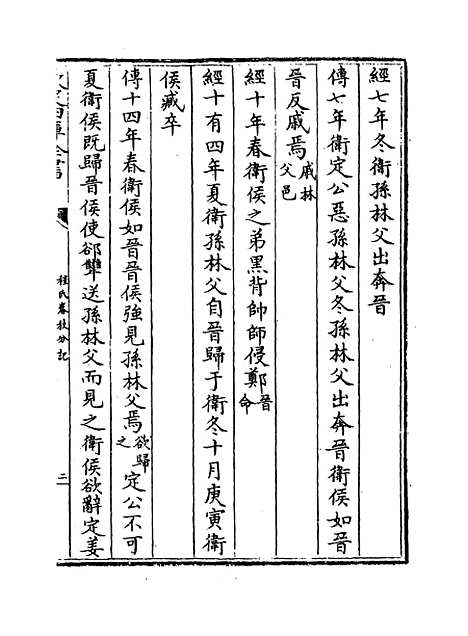 經七年冬衛孫林父出奔晉
傳七年衛定公惡孫林父冬孫林父出奔晉衛侯如晉
晉反戚焉戚林父邑
經十年春衛侯之弟黑背帥師侵鄭晉命
經十有四年夏衛孫林父自晉歸于衛冬十月庚寅衛
侯臧卒
傳十四年春衛侯如晉晉侯強見孫林父焉欲歸之定公不可
夏衛侯既歸晉侯使郤犨送孫林父而見之衛侯欲辭定姜
程氏春秋分記
二